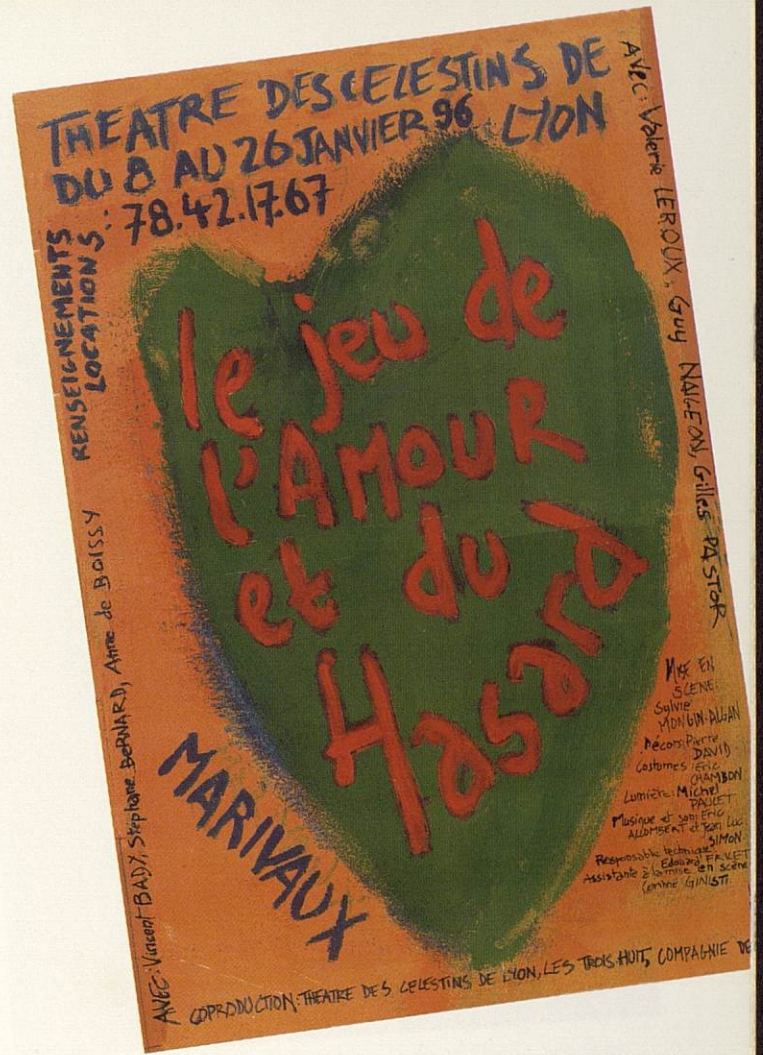 THEATRE DES CELESTINS DE
LYON
DU 8 AU 26 JANVIER 96
RENSEIGNEMENTS
LOCATIONS : 78.42.17.67
le jeu de
l'AMOUR
et du
Hasard
MARIVAUX
AVEC: Vincent BADY, Stephane BERNARD, Anne de BOISSY
AVEC: Valerie LEROUX, Guy NAIGEON, Gilles PASTOR
MISE EN
SCENE:
Sylvie
MONGIN-ALGAN
Décors: Pierre
DAVID
Costumes: Eric
CHAMBON
Lumière: Michel
PAULET
Musique et son: Eric
ALLOMBERT et Jean Luc
SIMON
Responsable technique:
Edouard
Assistante à la mise en scène
Corinne GINISTI
COPRODUCTION: THEATRE DES CELESTINS DE LYON, LES TROIS-HUIT, COMPAGNIE DE